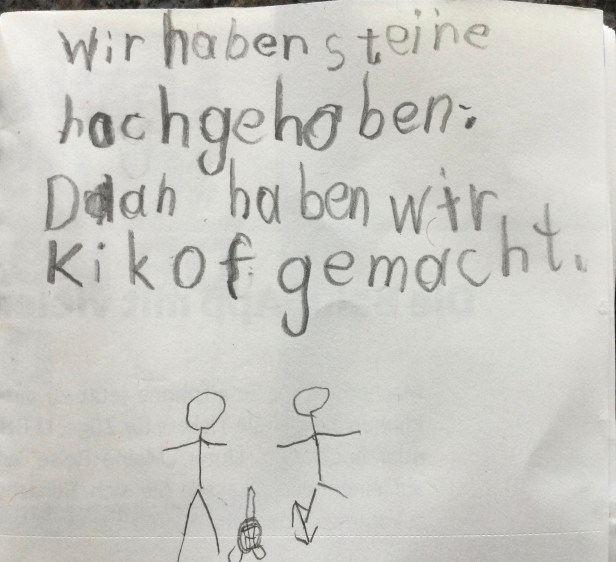 Wir haben steine
hochgehoben.
Dah haben wir
Kikof gemacht.